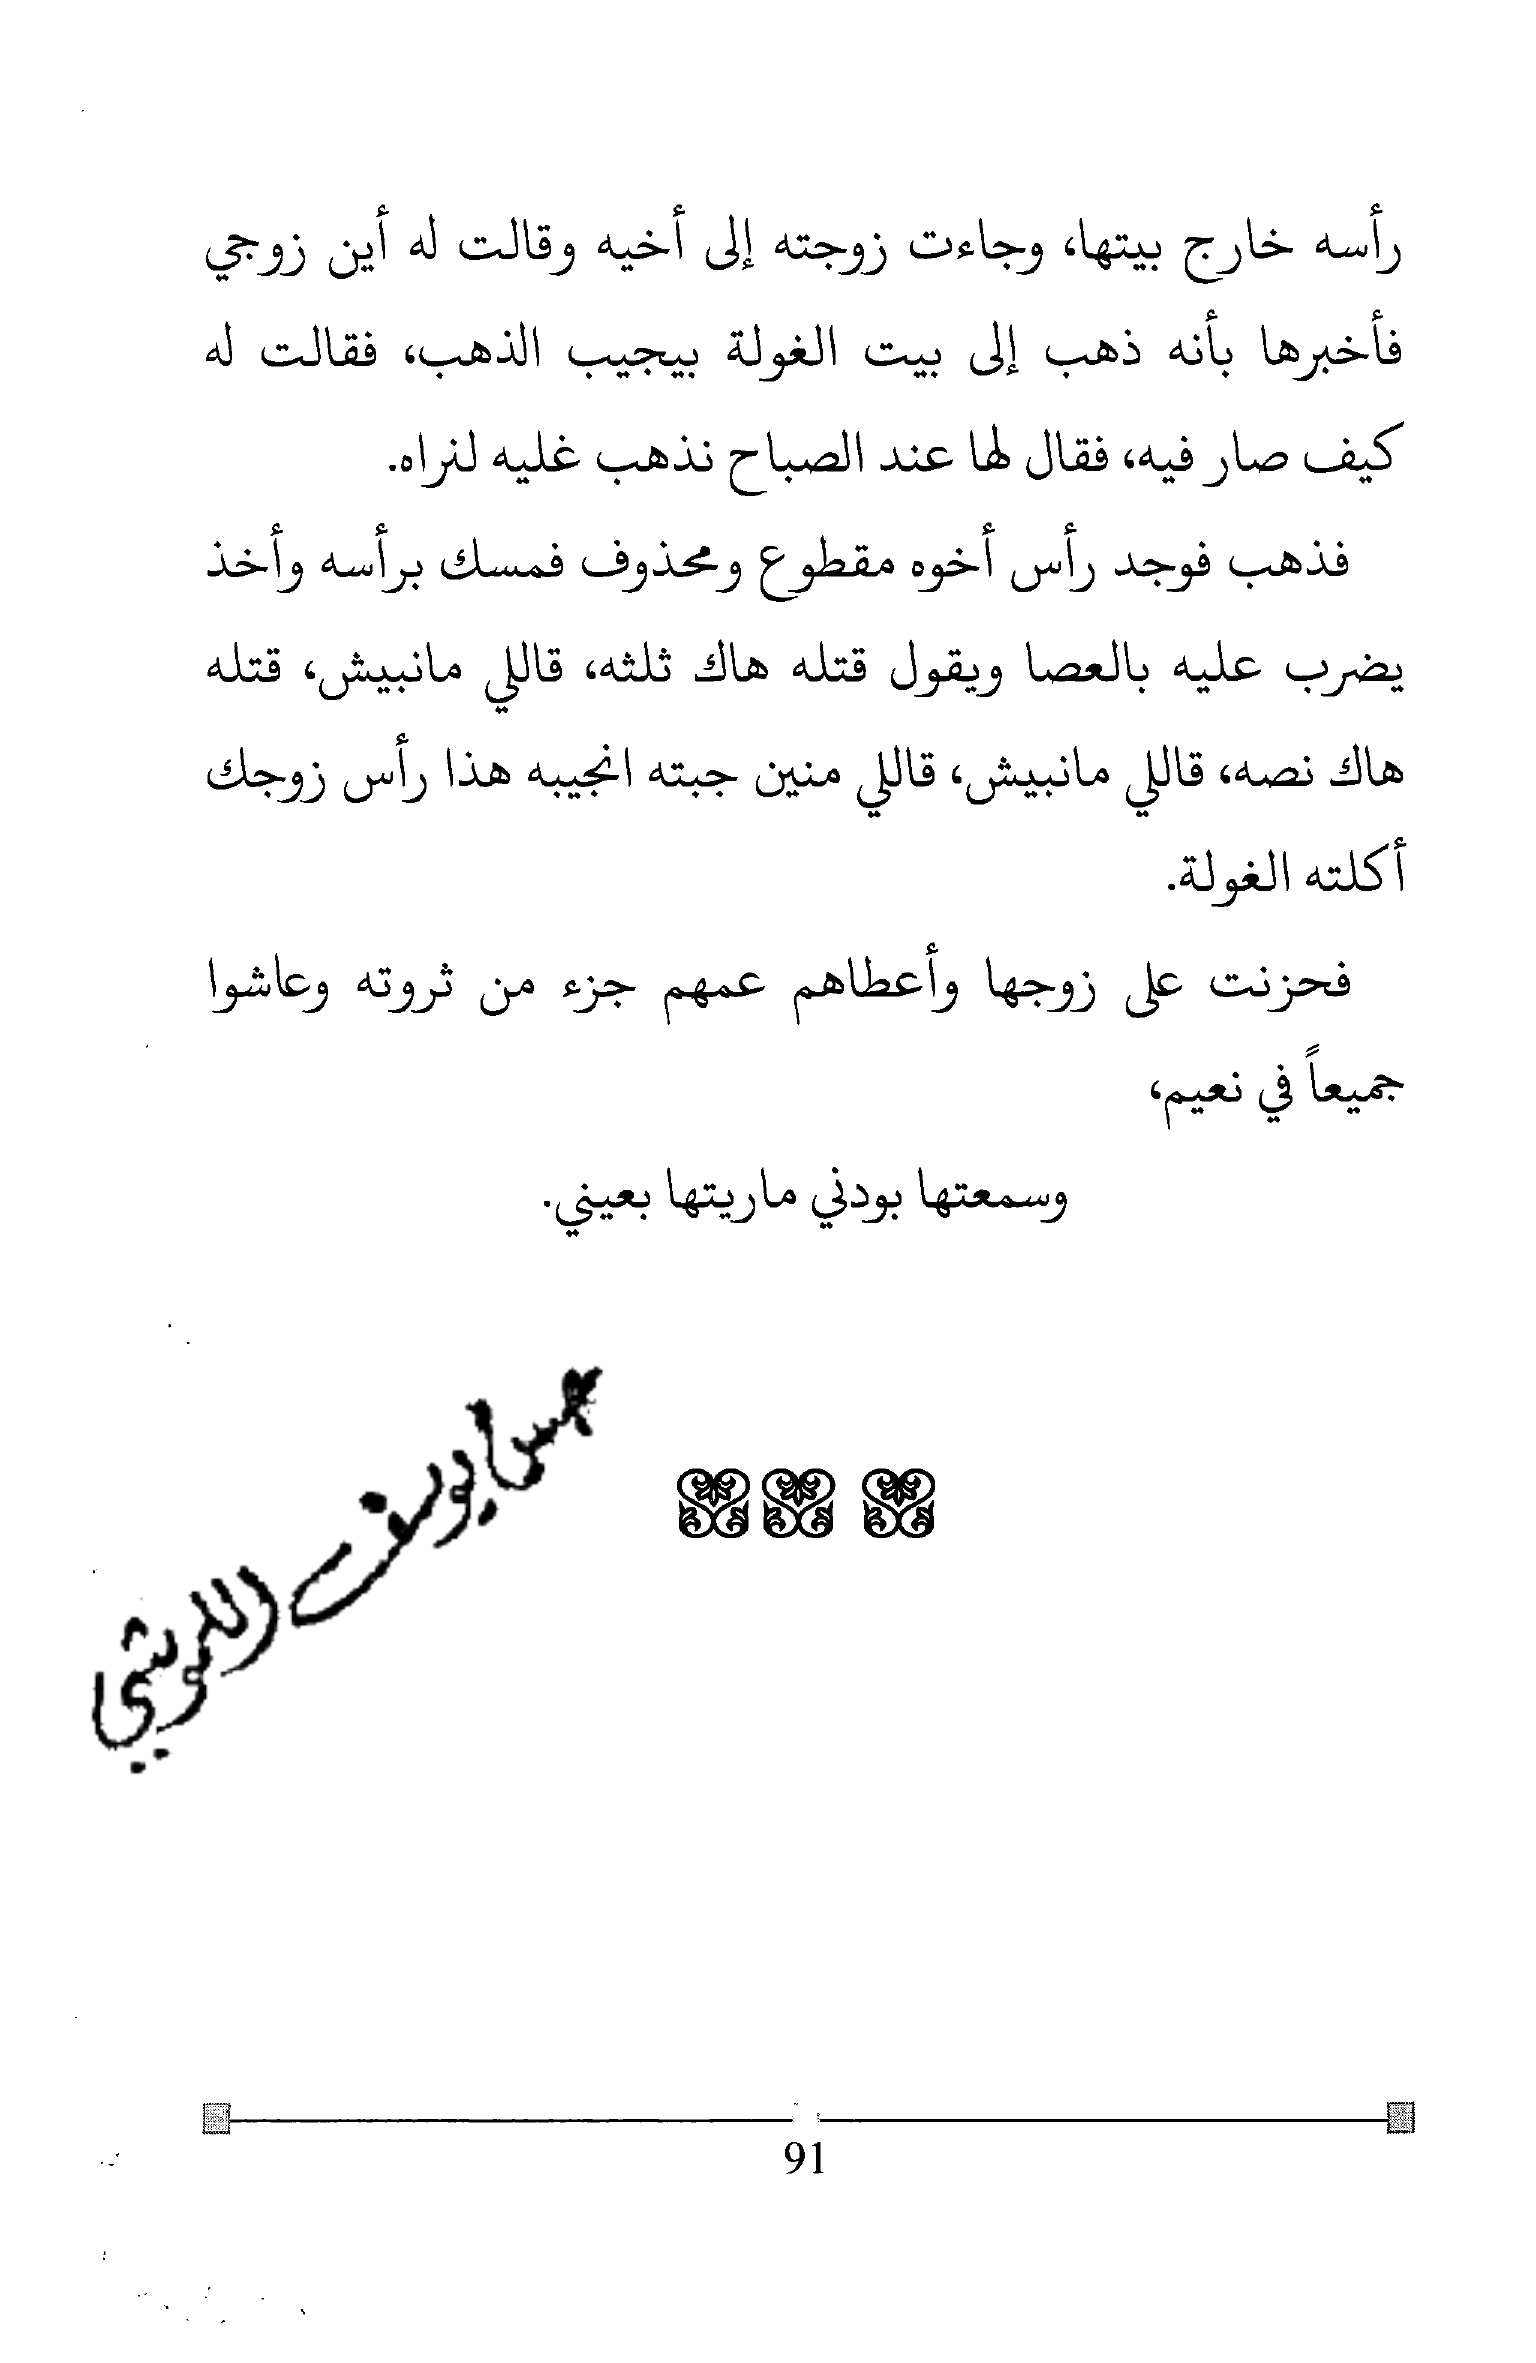 رأسه خارج بيتها، وجاءت زوجته إلى أخيه وقالت له أين زوجي
فأخبرها بأنه ذهب إلى بيت الغولة بيجيب الذهب، فقالت له
كيف صار فيه، فقال لها عند الصباح نذهب غليه لنراه.
فذهب فوجد رأس أخوه مقطوع ومحذوف فمسك برأسه وأخذ
يضرب عليه بالعصا ويقول قتله هاك ثلثه، قاللي مانبيش، قتله
هاك نصه، قاللي مانبيش، قاللي منين جبته انجيبه هذا رأس زوجك
أكلته الغولة.
فحزنت على زوجها وأعطاهم عمهم جزء من ثروته وعاشوا
جميعاً في نعيم،
وسمعتها بودني ماريتها بعيني.
يوسف
91